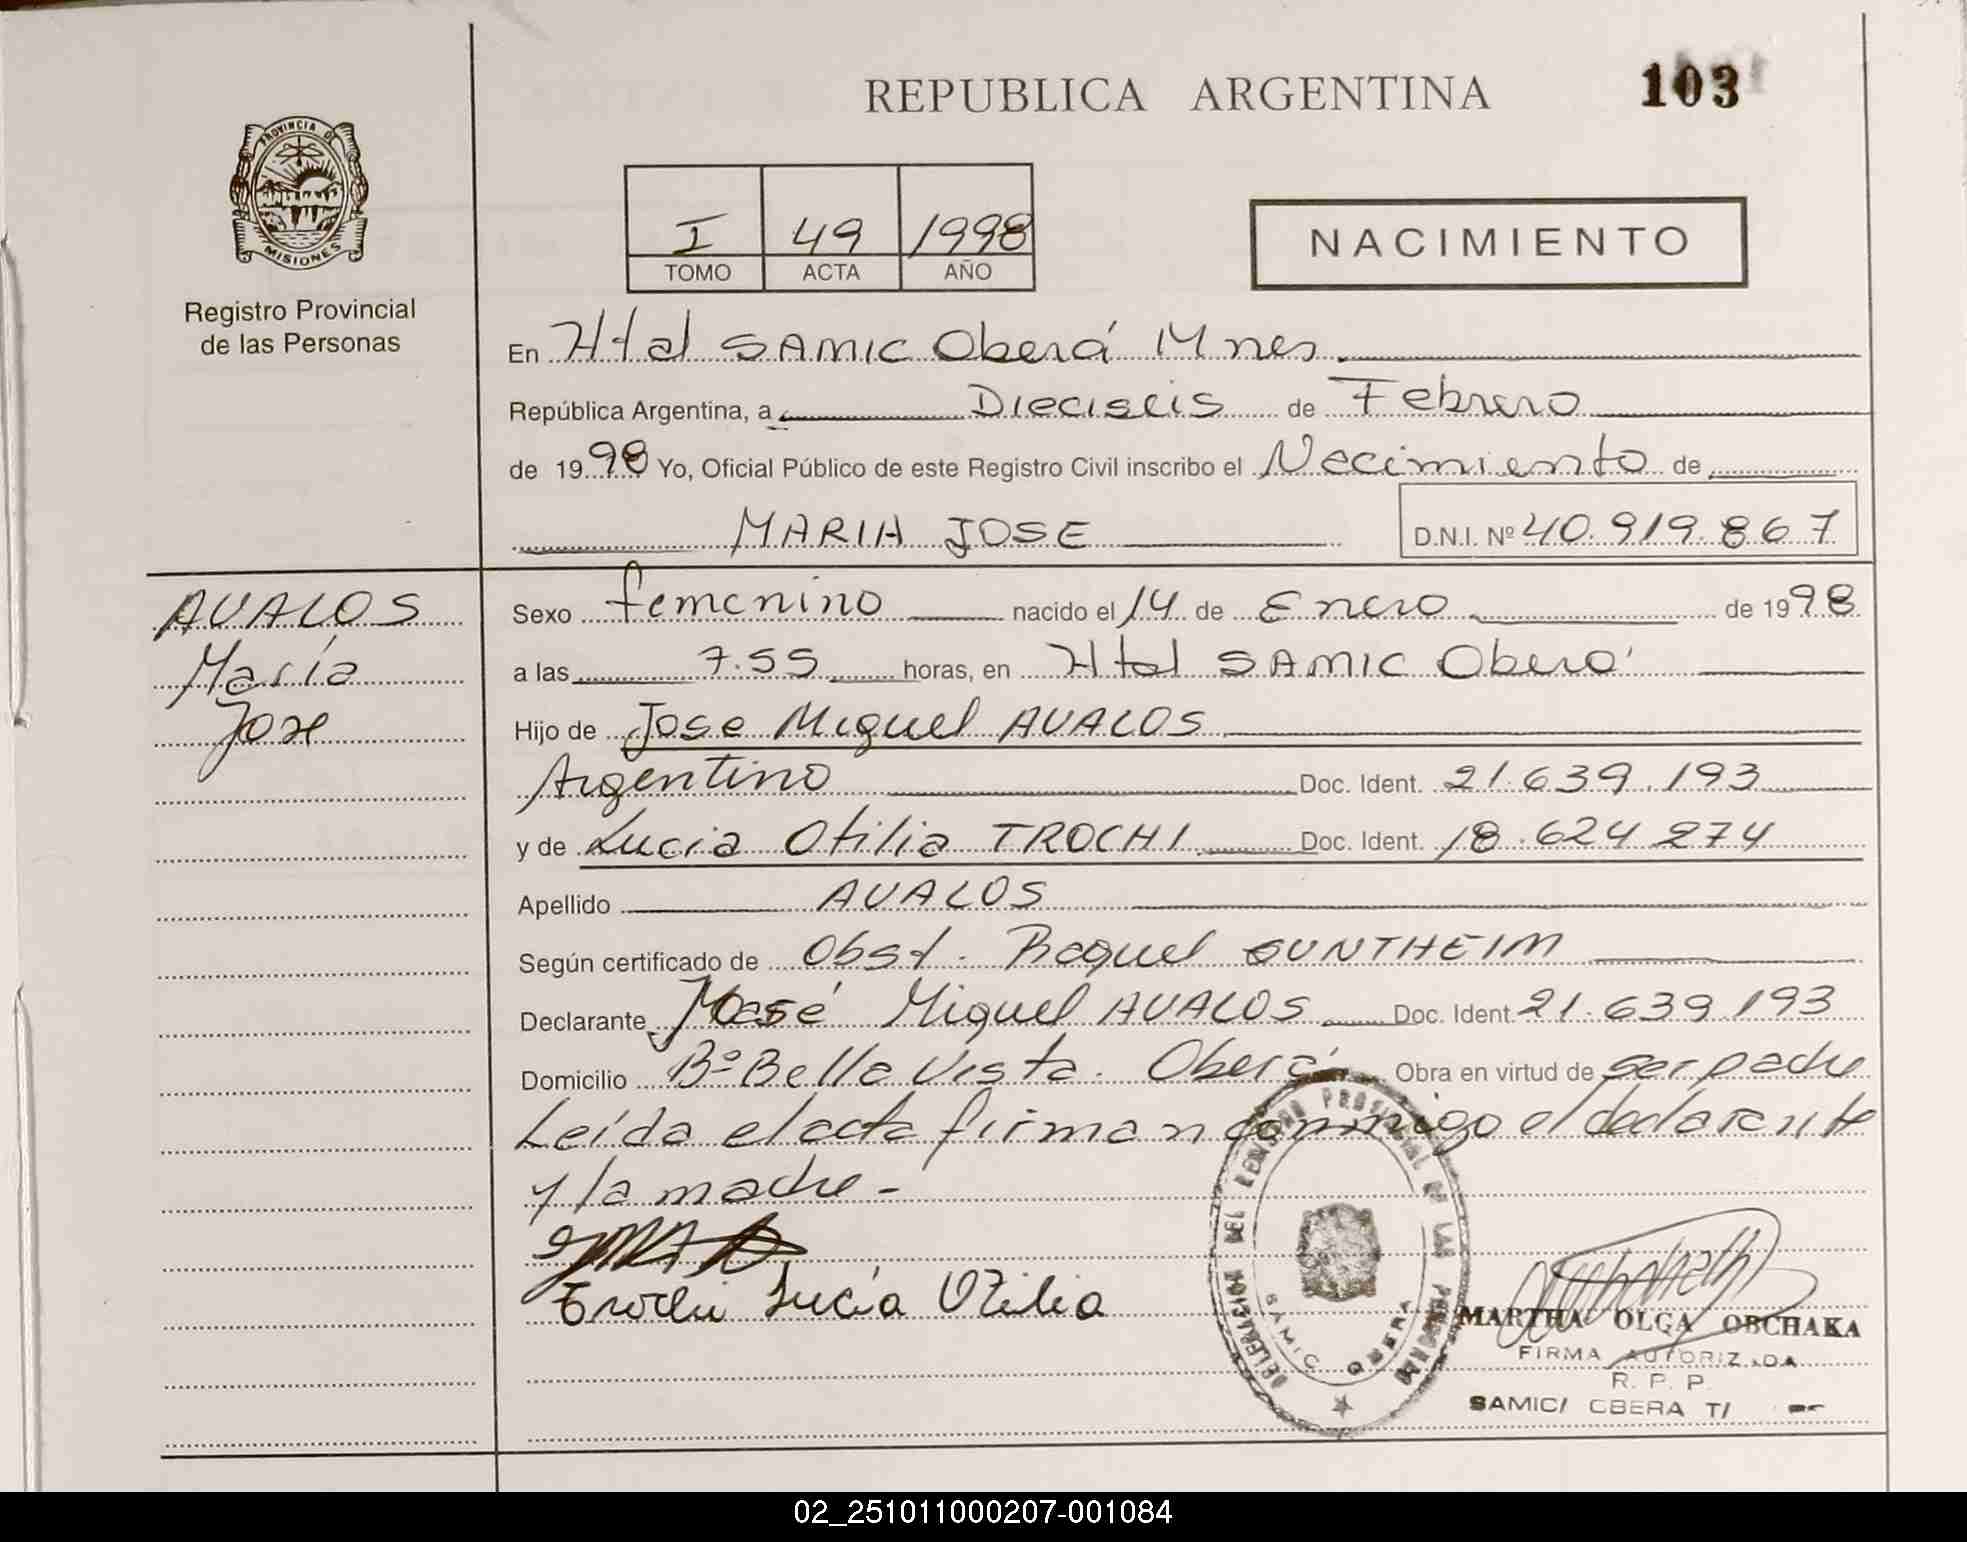 REPUBLICA ARGENTINA
103
PROVINCIA DE
MISIONES
Registro Provincial
de las Personas
I 49 1998
TOMO ACTA AÑO
NACIMIENTO
En Htal SAMIC Oberá Mnes
República Argentina, a Dieciseis de Febrero
de 1998 Yo, Oficial Público de este Registro Civil inscribo el Nacimiento de
MARIA JOSE D.N.I. Nº 40.919.867
AVALOS
María
Jose
Sexo femenino nacido el 14 de Enero de 1998
a las 7.55 horas, en Htal SAMIC Oberá
Hijo de Jose Miguel AVALOS
Argentino Doc. Ident. 21.639.193
y de Lucia Otilia TROCHI Doc. Ident. 18.624.274
Apellido AVALOS
Según certificado de Obst. Raquel SUNTHEIM
Declarante José Miguel AVALOS Doc. Ident 21.639.193
Domicilio Bº Bella Vista. Oberá Obra en virtud de ser padre
Leída el acta firman conmigo el declarante
y la madre -
Trochi Lucía Otilia
DELEGACION DEL REGISTRO PROVINCIAL DE LAS PERSONAS
SAMIC OBERA
MARTHA OLGA OBCHAKA
FIRMA AUTORIZADA
R. P. P.
SAMIC/ OBERA T/
02_251011000207-001084